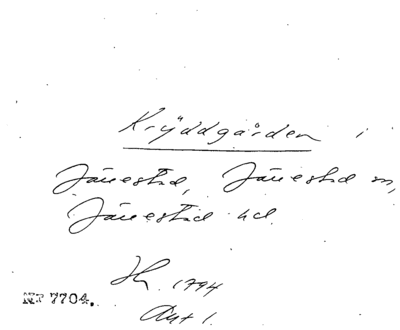 Kryddgården i
Järrestad, Järrestad sn,
Järrestad hd.
1794
Nr 7704.